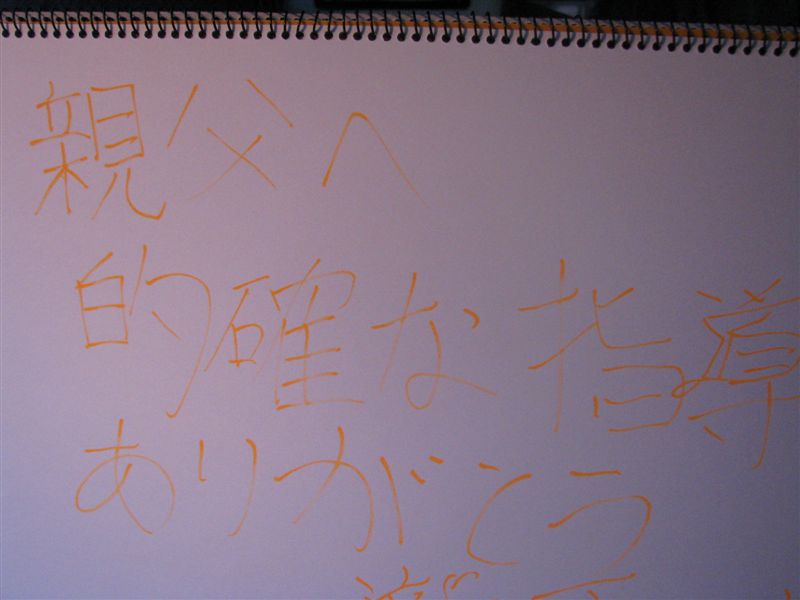 親父へ
的確な指導
ありがとう